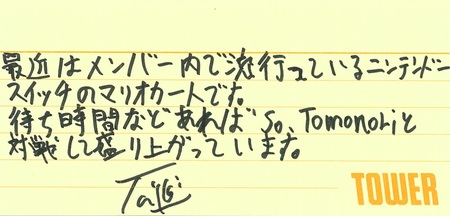 最近はメンバー内で流行っているニンテンドー
スイッチのマリオカートです。
待ち時間などあれば So, Tomonoriと
対戦して盛り上がっています。
Taiki
TOWER